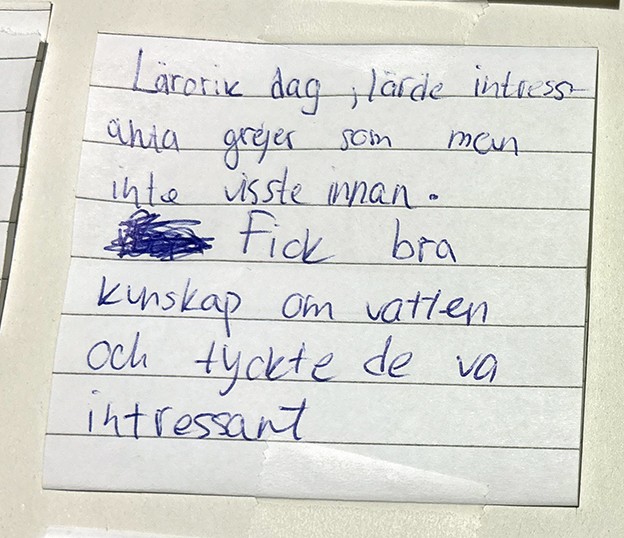 Lärorik dag, lärde intress-
anta grejer som man
inte visste innan.
Fick bra
kunskap om vatten
och tyckte de va
intressant